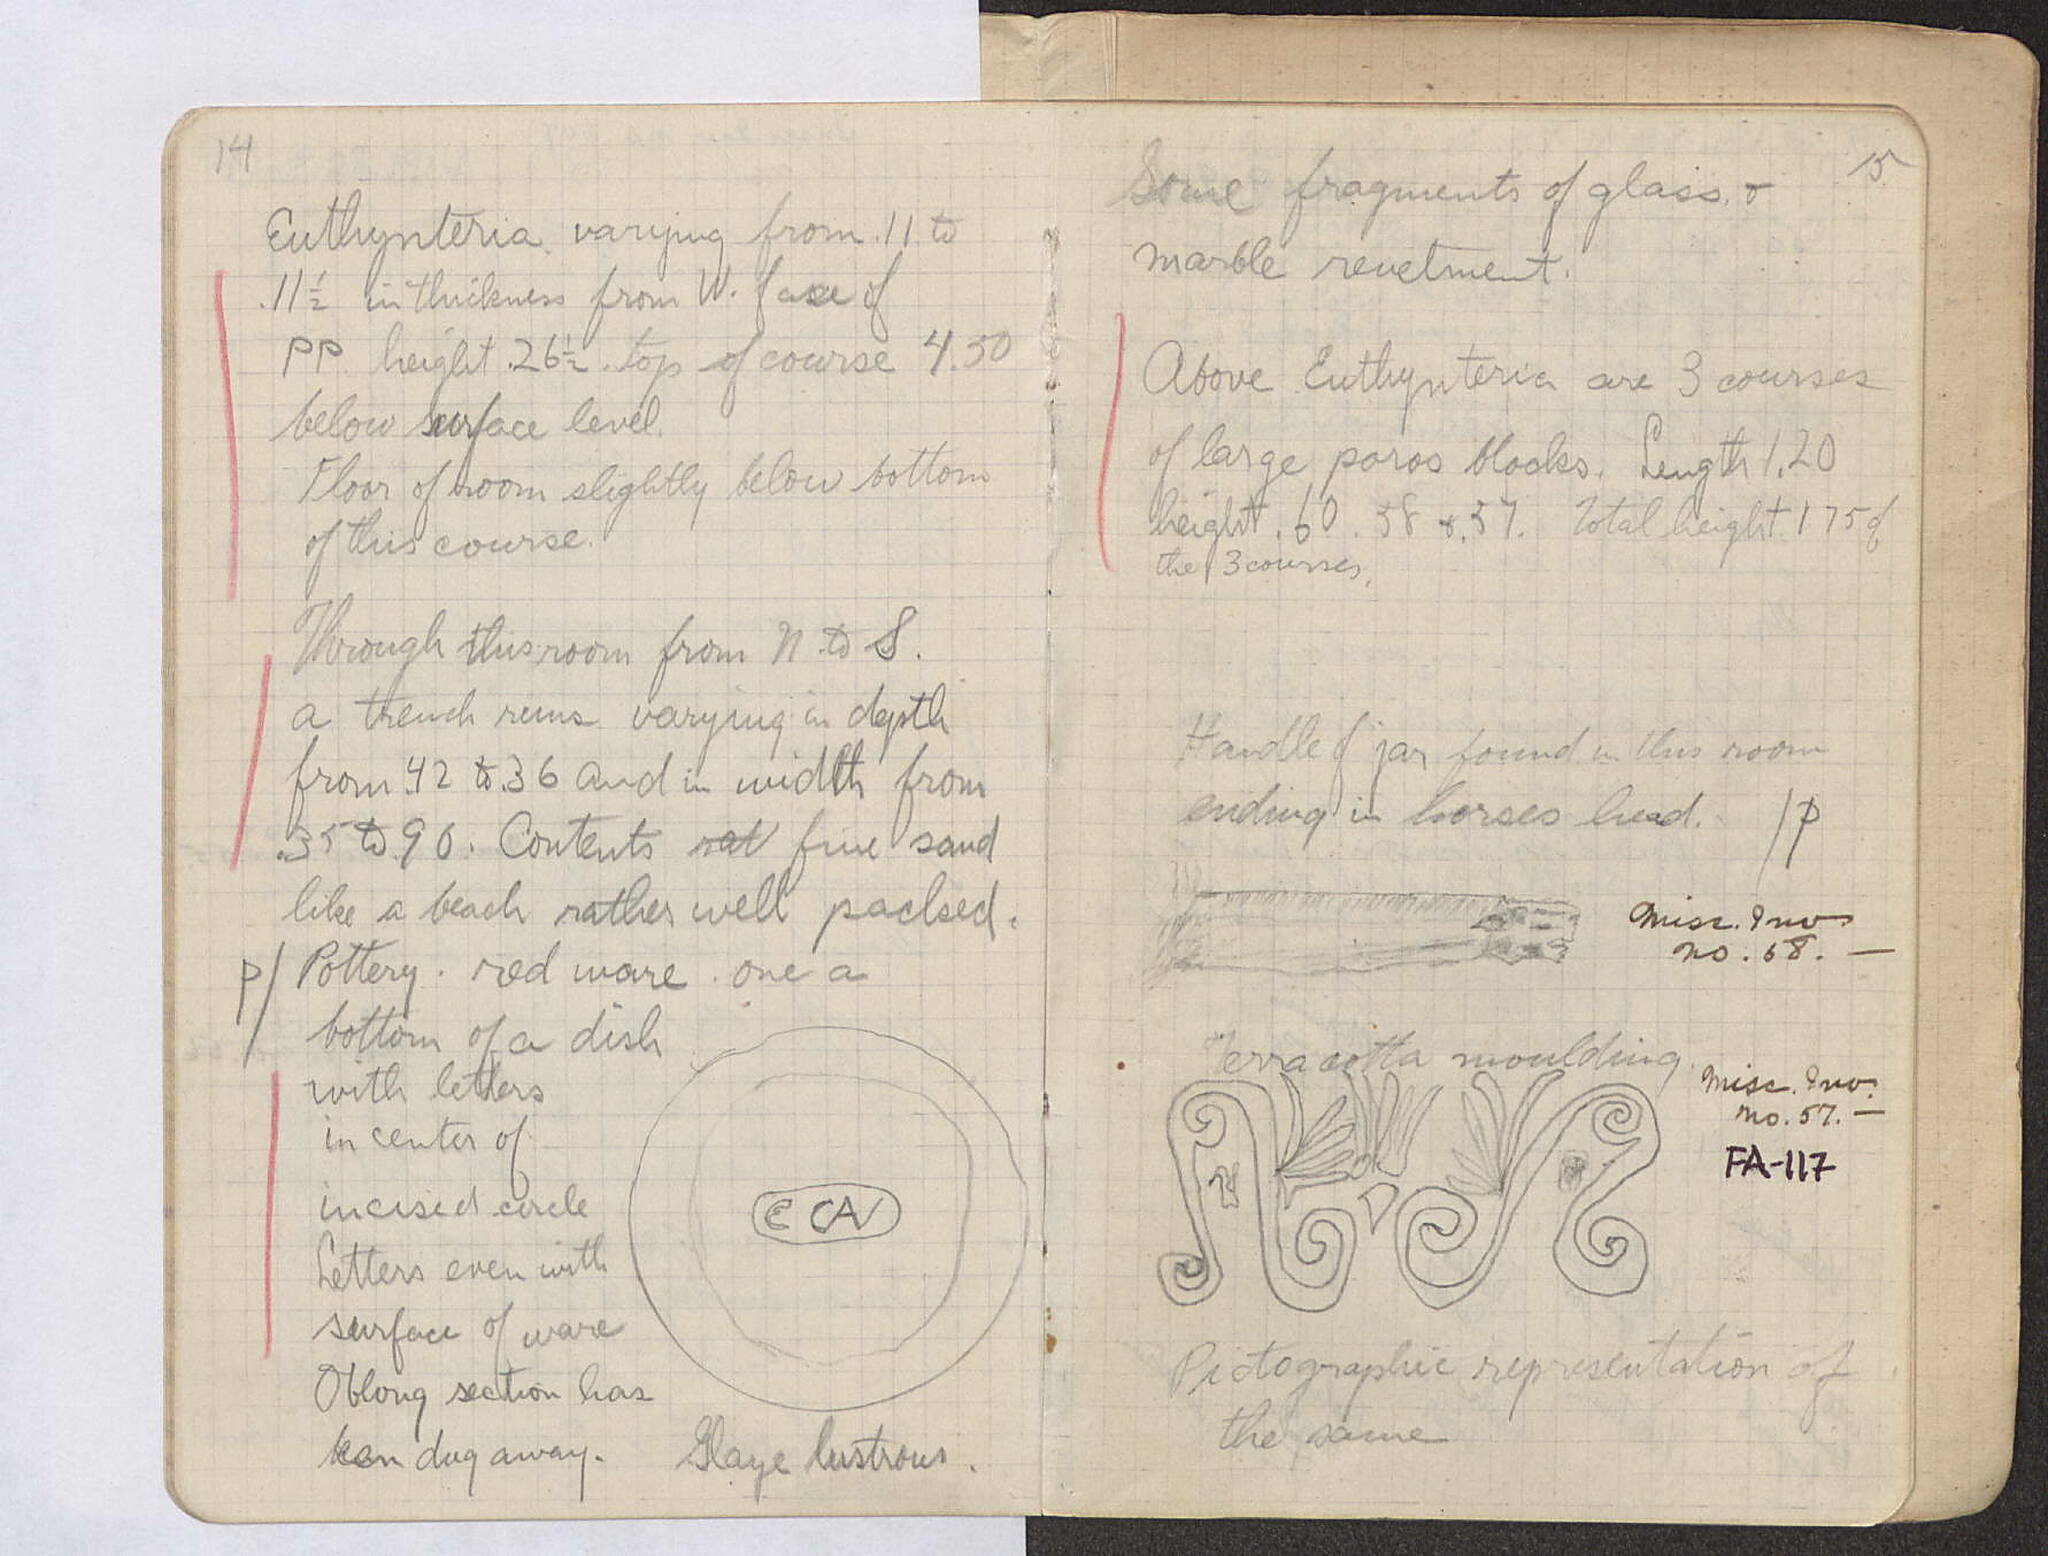 14
Euthynteria varying from .11 to
.11½ in thickness from W. face of
PP height .26½. top of course 4.50
below surface level.
Floor of room slightly below bottom
of this course.
Through this room from N to S.
a trench runs varying in depth
from .42 to .36 and in width from
.35 to .90. Contents rat fine sand
like a beach rather well packed.
P/ Pottery. red ware. one a
bottom of a dish
with letters
in center of
incised circle
Letters even with
surface of ware
Oblong section has
been dug away. Glaze lustrous.
ECAV
15
Some fragments of glass &
marble revetment.
Above Euthynteria are 3 courses
of large poros blocks. Length 1.20
height .60 .58 & .57. Total height 1.75 of
the 3 courses.
Handle of jar found in this room
ending in horses head. /P
Misc. Inv
no. 58. —
Terracotta moulding
Misc. Inv.
no. 57. —
FA-117
Pictographic representation of
the same